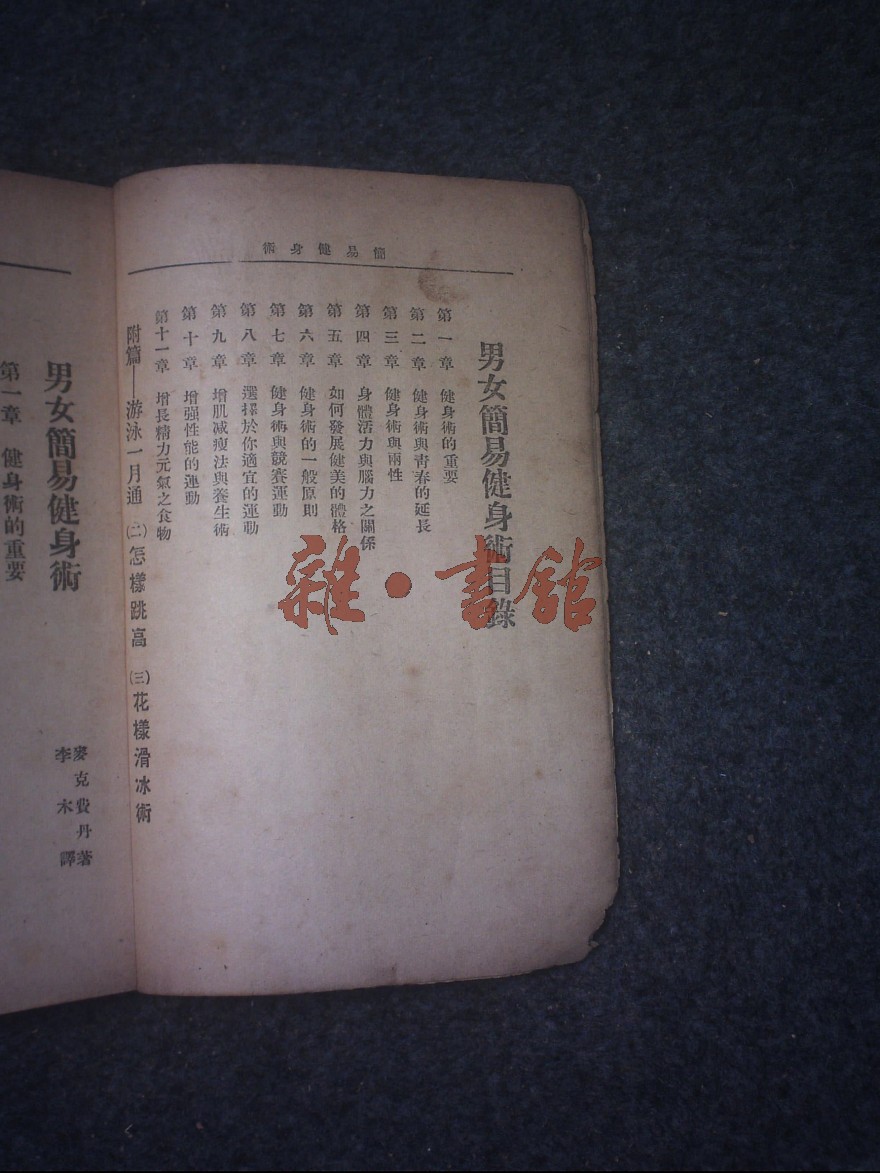 簡易健身術
男女簡易健身術目錄
第一章 健身術的重要
第二章 健身術與青春的延長
第三章 健身術與兩性
第四章 身體活力與腦力之關係
第五章 如何發展健美的體格
第六章 健身術的一般原則
第七章 健身術與競賽運動
第八章 選擇於你適宜的運動
第九章 增肌减瘦法與養生術
第十章 增强性能的運動
第十一章 增長精力元氣之食物
附篇—游泳一月通 (二)怎樣跳高 (三)花樣滑冰術
雜·書館
男女簡易健身術
麥克費丹著
李木譯
第一章 健身術的重要